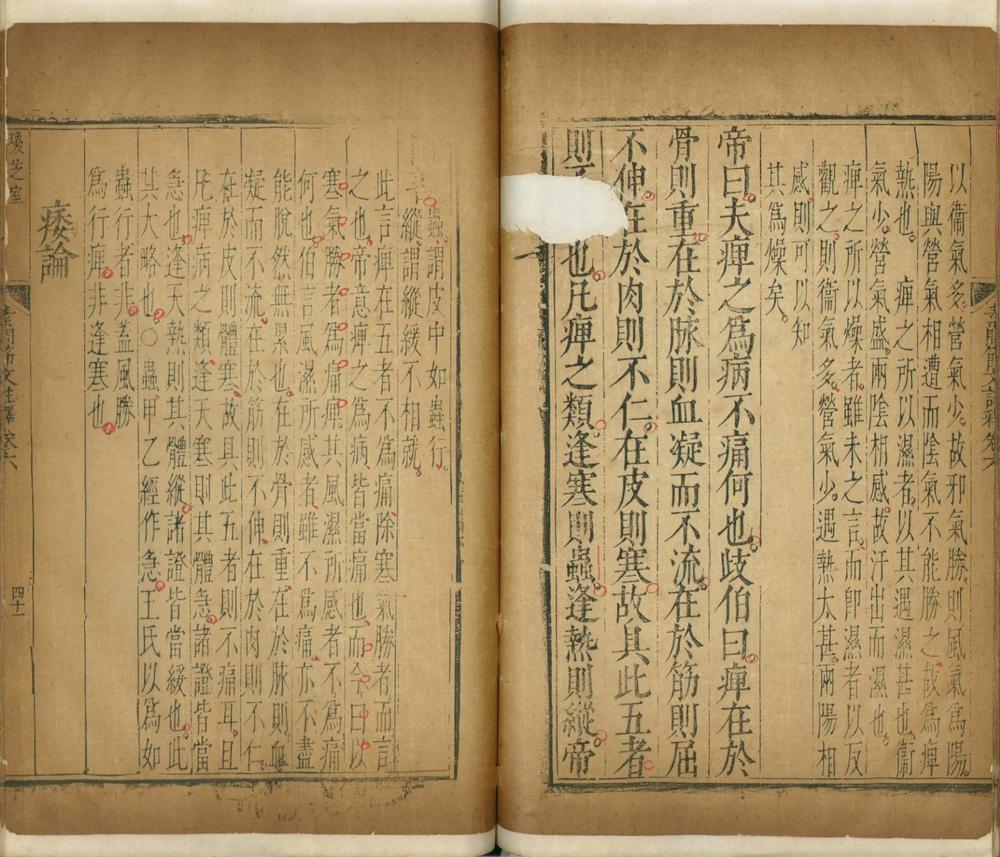 以衞氣多營氣少故邪氣勝則風氣爲陽
陽與營氣相遭而陰氣不能勝之故爲痺
熱也 痺之所以濕者以其遇濕甚也衞
氣少營氣盛兩陰相感故汗出而濕也
痺之所以燥者雖未之言而卽濕者以反
觀之則衞氣多營氣少遇熱太甚兩陽相
感則可以知
其爲燥矣
帝曰夫痺之爲病不痛何也歧伯曰痺在於
骨則重在於脉則血凝而不流在於筋則屈
不伸在於肉則不仁在皮則寒故具此五者
則 也凡痺之類逢寒則蟲逢熱則縱帝
蟲謂皮中如蟲行
縱謂縱緩不相就
此言痺在五者不爲痛除寒氣勝者而言
之也帝意痺之爲病皆當痛也而今曰以
寒氣勝者爲痛痺其風濕所感者不爲痛
何也伯言風濕所感者雖不爲痛亦不盡
能脫然無累也在於骨則重在於脉則血
凝而不流在於筋則不伸在於肉則不仁
在於皮則體寒故具此五者則不痛耳且
凡痺病之類逢天寒則其體急諸證皆當
急也逢天熱則其體縱諸證皆當緩也此
其大略也〇蟲甲乙經作急王氏以爲如
蟲行者非蓋風勝
爲行痺非逢寒也
痿論
卷六
四十一